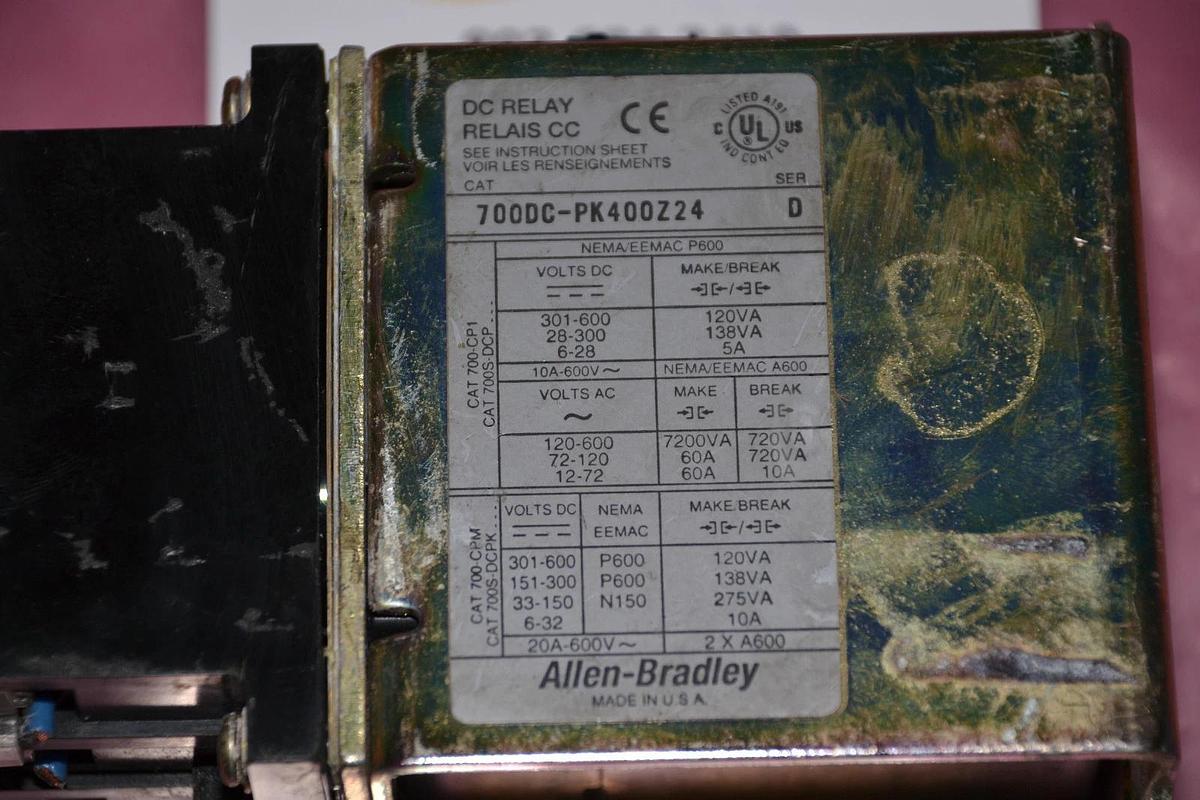 DC RELAY
RELAIS CC
CE
LISTED A191
C UL US
®
IND CONT EQ
SEE INSTRUCTION SHEET
VOIR LES RENSEIGNEMENTS
CAT SER
700DC-PK400Z24 D
NEMA/EEMAC P600
CAT 700-CP1
CAT 700S-DCP....
VOLTS DC MAKE/BREAK
301-600 120VA
28-300 138VA
6-28 5A
10A-600V~ NEMA/EEMAC A600
VOLTS AC MAKE BREAK
~
120-600 7200VA 720VA
72-120 60A 720VA
12-72 60A 10A
CAT 700-CPM
CAT 700S-DCPK....
VOLTS DC NEMA MAKE/BREAK
EEMAC
301-600 P600 120VA
151-300 P600 138VA
33-150 N150 275VA
6-32 10A
20A-600V~ 2 X A600
Allen-Bradley
MADE IN U.S.A.